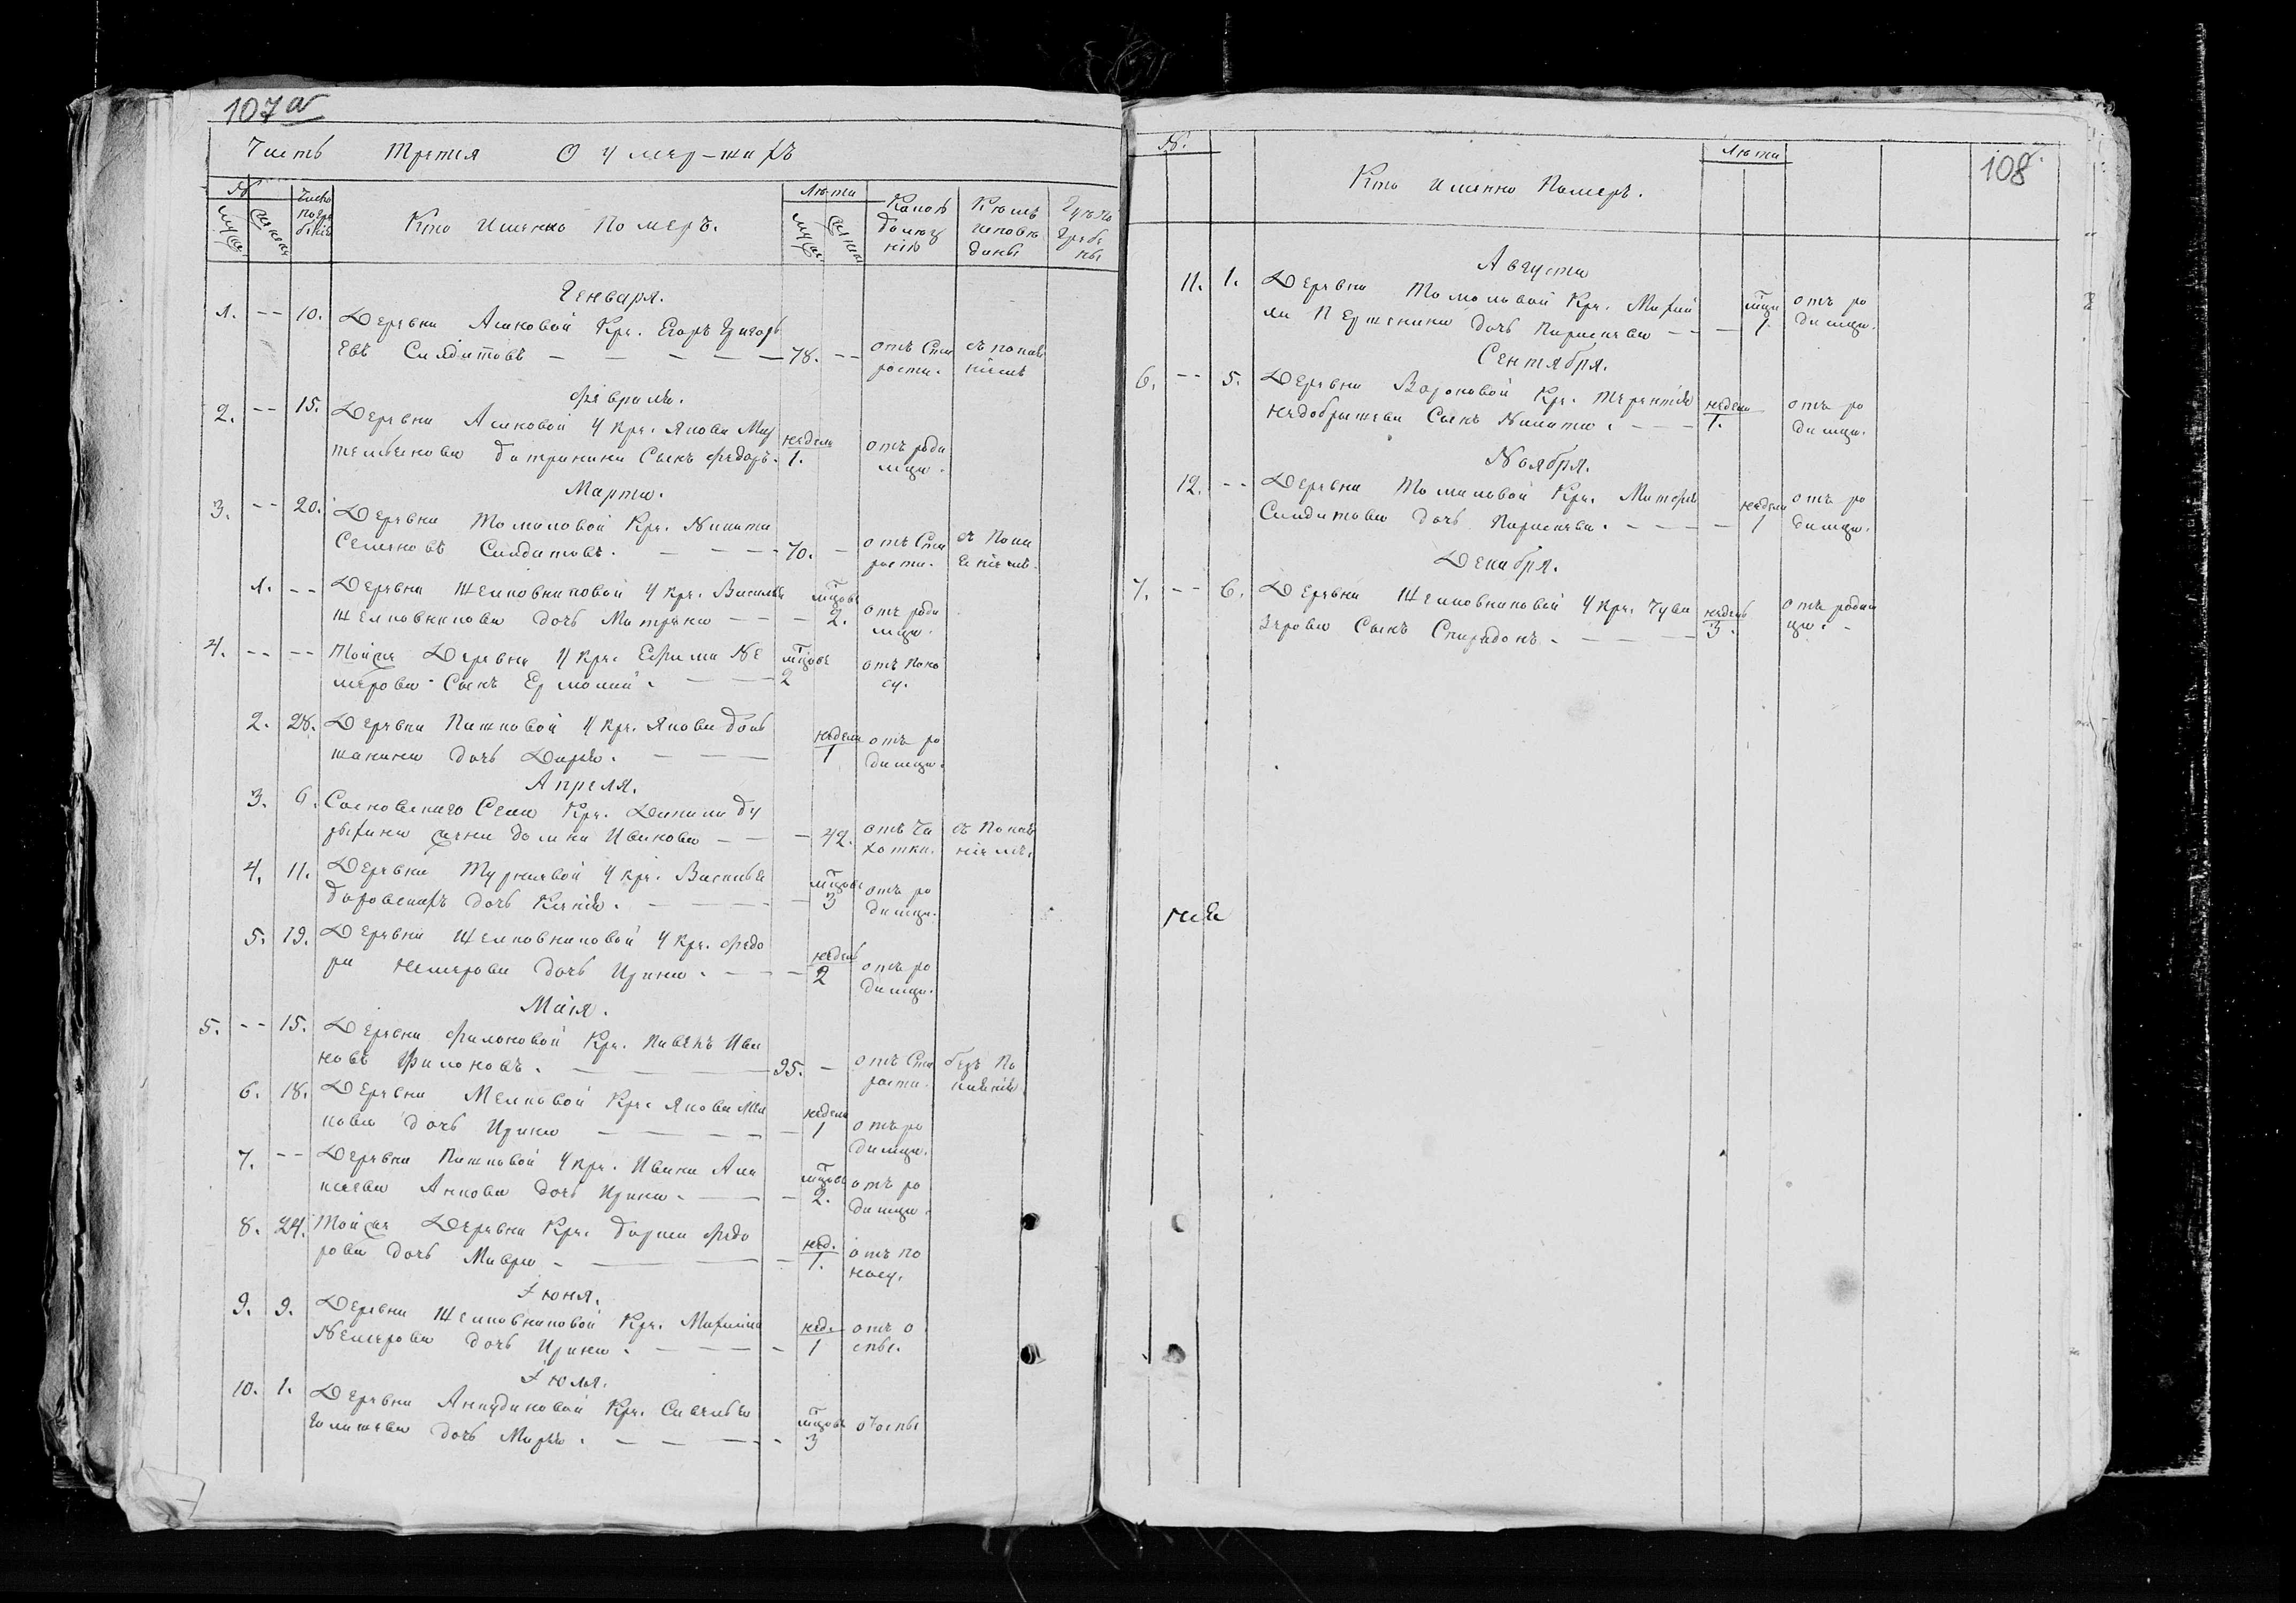 107 а
Часть Третья О умер-шихъ
№ Число погре бенія Кто именно Померъ. Лѣта Какою болезнію Кѣмъ исповеданы Гдѣ по гребены
муж. женск. муж. женск.
Генваря.
1. -- 10. Деревни Асиковой Кре. Егоръ Григорь
евъ Силдитовъ — — — — 78. -- отъ Ста рости. съ покая ніемъ
Февраля.
2. -- 15. Деревни Асиковой у кре. Якова
сынъ Федоръ. неделя 1. отъ роди мца.
Марта.
3. -- 20. Деревни Томиловой Кре. Никита
Семеновъ Силдитовъ. — — — 70. — отъ Ста рости. съ Пока еніемъ.
1. -- Деревни Шелковниковой у кре. Василья
Шелковникова дочь Матрена — — — мцовъ 2. отъ роди мца.
4. -- -- Тойже Деревни у кре. Ефима Не
мерова Сынъ Ермолай. — — мцовъ 2 отъ поно су.
2. 28. Деревни Пашковой у кре. Якова Боль
шанина дочь Дарья. — — — неделя 1 отъ ро димца.
Апреля.
3. 6. Сосновскаго Села Кре. Данила Бу
рыхина жена Домна Иванова — — — 42. отъ Ча хотки. съ Покая ніемъ.
4. 11. Деревни у кре. Василья
Боровскихъ дочь Ксенія. — — — мцовъ 3 отъ ро димца.
5. 19. Деревни Шелковниковой у кре. Федо
ра Немерова дочь Ирина. — — — недель 2 отъ ро димца.
Маія.
5. -- 15. Деревни Филоновой Кре. Павелъ Ива
новъ Филоновъ. — — — 95. — отъ Ста рости. безъ По каянія.
6. 18. Деревни Мелковой Кре. Якова Мел
кова дочь Ирина — — — — неделя 1 отъ ро димца.
7. -- Деревни Пашковой у кре. Ивана Але
ксеева дочь Ирина. — — — мцовъ 2. отъ ро димца.
8. 24. Тойже Деревни Кре. Федо
рова дочь Мавра — — — — нед. 1. отъ по носу.
Іюня.
9. 9. Деревни Шелковниковой Кре. Михаила
Немерова дочь Ирина. — — — нед. 1 отъ о спы.
Іюля.
10. 1. Деревни Анкудиновой Кре. Савелья
дочь Марья. — — — мцовъ 3 отъ оспы
№. Кто именно Померъ. Лѣта 108.
Августа
11. 1. Деревни Томиловой Кре. Михай
ла Першенина дочь Парасковья — — — мцъ 1. отъ ро димца.
Сентября.
6. -- 5. Деревни Вороновой Кре. Терентія
Недобрышева Сынъ Никита. — — — неделя 1. отъ ро димца.
Ноября.
12. -- Деревни Томиловой Кре. Матфея
Силдитова дочь Парасковья. — — — неделя 1 отъ ро димца.
Декабря.
7. -- 6. Деревни Шелковниковой у кре.
Сынъ Спиридонъ. — — — недель 3. отъ родим ца. —